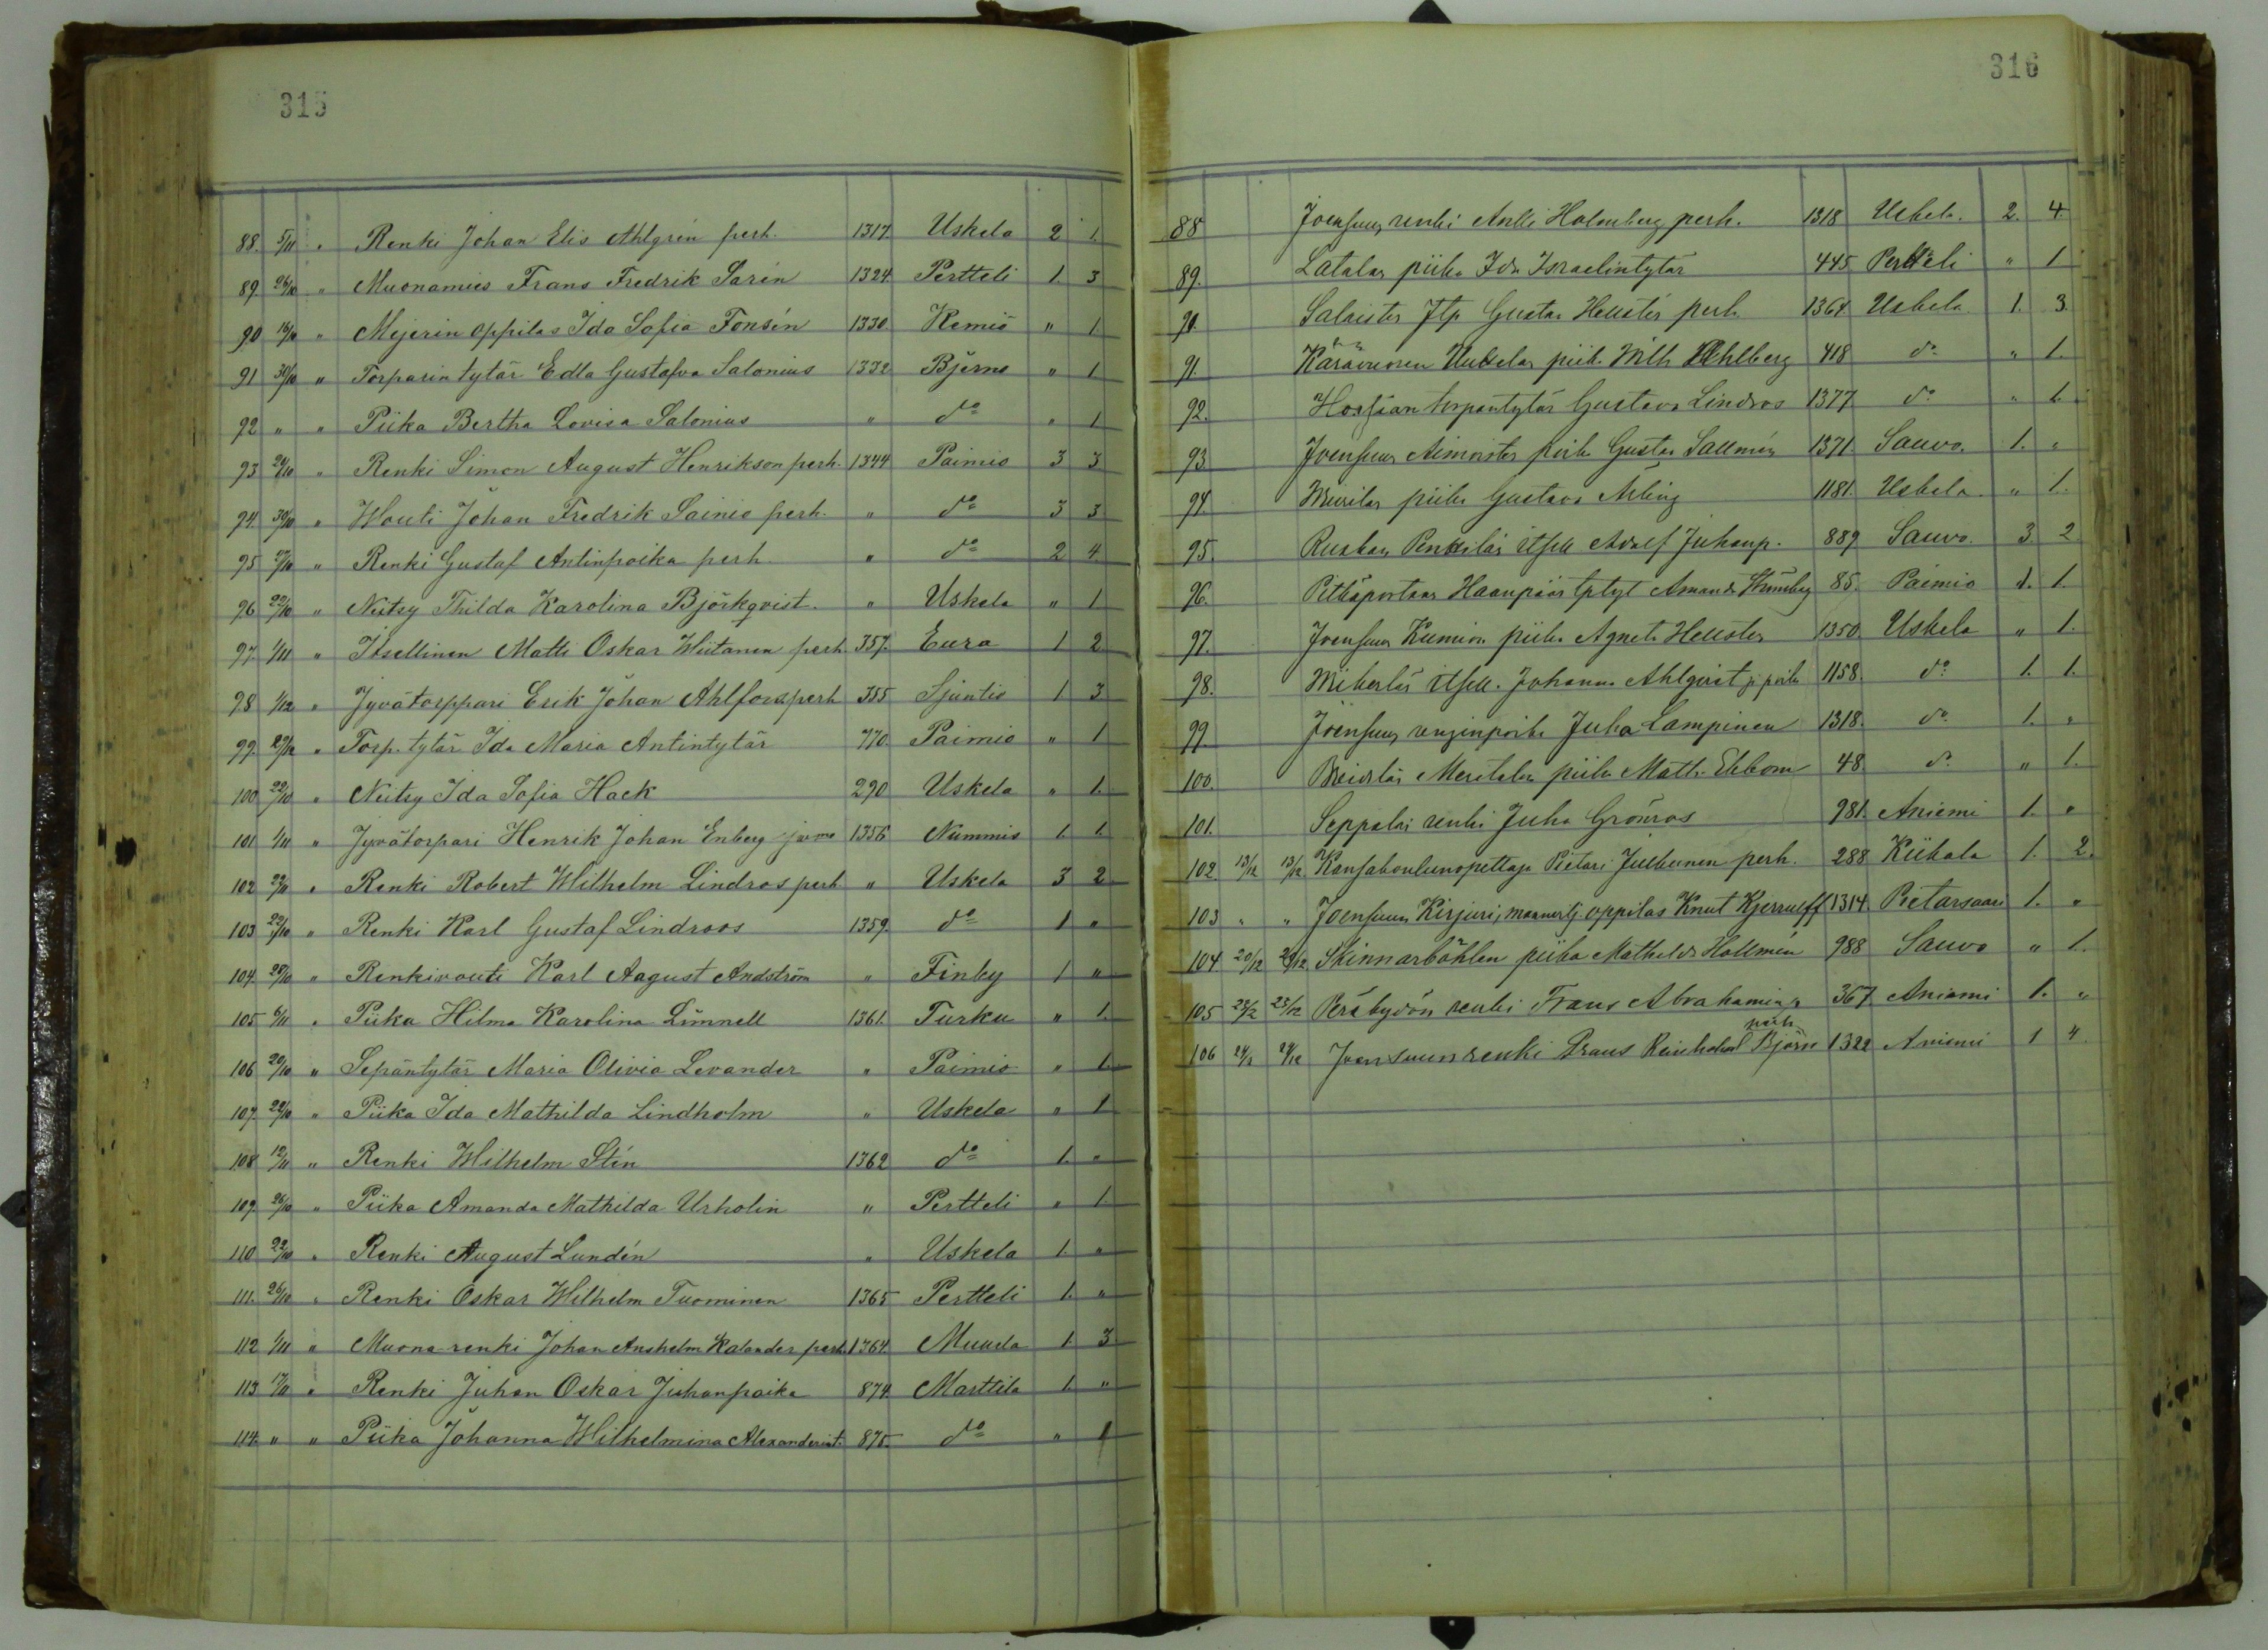 315
88. 5/11 " Renki Johan Elis Ahlgrén perh. 1317 Uskela 2 1.
89 26/10 " Muonamies Frans Fredrik Sarén 1324 Pertteli 1. 3
90 18/10 " Mejerin oppilas Ida Sofia Fonsén 1330 Kemiö " 1.
91 30/10 " Torparin tytär Edla Gustafva Salonius 1332 Bjerno " 1
92 " " Piika Bertha Lovisa Salonius " do " 1
93 29/10 " Renki Simon August Henrikson perh. 1344 Paimio 3 3
94. 30/10 " Wouti Johan Fredrik Sainio perh. " do 3 3
95 27/10 " Renki Gustaf Antinpoika perh. " do 2 4.
96 22/10 " Neitsy Thilda Karolina Björkqvist. " Uskela " 1
97. 1/11 " Itsellinen Matti Oskar Wiitanen perh. 357. Eura 1 2
98 1/12 " Jyvätorppari Erik Johan Ahlfors perh 355 Sjuntio 1 3
99. 29/12 " Torp. tytär Ida Maria Antintytär 770. Paimio " 1
100 22/10 " Neitsy Ida Sofia Hack 290 Uskela " 1.
101 1/11 " Jyvätorpari Henrik Johan Enberg 1356 Nummis 1. 1.
102 22/11 " Renki Robert Wilhelm Lindros perh " Uskela 3 2
103 22/10 " Renki Karl Gustaf Lindroos 1359. do 1 "
104. 29/10 " Renkivouti Karl August Andström " Finby 1 "
105 6/11 " Piika Hilma Karolina Limnell 1361. Turku " 1.
106 20/10 " Sepäntytär Maria Olivia Levander " Paimio " 1.
107. 22/10 " Piika Ida Mathilda Lindholm " Uskela " 1
108 12/11 " Renki Wilhelm Stén 1362 do 1. "
109. 26/10 " Piika Amanda Mathilda Urholin " Pertteli " 1.
110 22/10 " Renki August Lundén " Uskela 1. "
111. 26/10 " Renki Oskar Wilhelm Tuominen 1365 Pertteli 1. "
112 1/11 " Muona-renki Johan Anshelm Kalander perh. 1364. Muurla 1. 3
113 17/11 " Renki Juhan Oskar Juhanpoika 874. Marttila 1. "
114. " " Piika Johanna Wilhelmina Alexanderint. 875. do " 1
316
88 Joensuun renki Antti Holmberg perh. 1318 Uskela. 2. 4.
89. Latalan piika Ida Israelintytär 445 Pertteli " 1
90. Salaisten Itp Gustav Hellstén perh. 1364. Uskela 1. 3.
91. Käräwuoren Uutelan piik. Wilh Kihlberg 418 do " 1.
92. torpantytär Gustava Lindros 1377 do " 1.
93 Joensuun Gustav Sallmén 1371. Sauvo. 1. "
94 piika Gustava Arling 1181. Uskela. " 1.
95. Ruskan Penkilän itsell Adolf Juhanp. 889 Sauvo. 3. 2.
96. Haanpään Amanda 85. Paimio 1. 1.
97. Joensuun piika Agneta Hellsten 1350. Uskela " 1.
98. itsell. Johanna Ahlqvist 1158. do 1. 1.
99. Joensuun renginpoika Juha Lampinen 1318. do 1. "
100. Meritalon piika Math. Ekbom 48 do " 1.
101. Seppälän renki Juha Grönros 981. Aniemi 1. "
102 13/12 13/12 Kansakoulunopettaja Pietari Julkunen perh. 288 Kiikala 1. 2.
103 " " Joensuun Kirjuri, oppilas Knut Kjerrulff 1314. Pietarsaari 1. "
104 20/12 20/12 Skinnarbölen piika Mathilda Hollmén 988 Sauvo " 1.
105 23/12 23/12 Peräkydön renki Frans Abrahaminp 367 Aniemi 1. "
106 24/12 24/12 Joensuun renki Frans Reinhold Björn perh. 1322 Aniemi 1 4